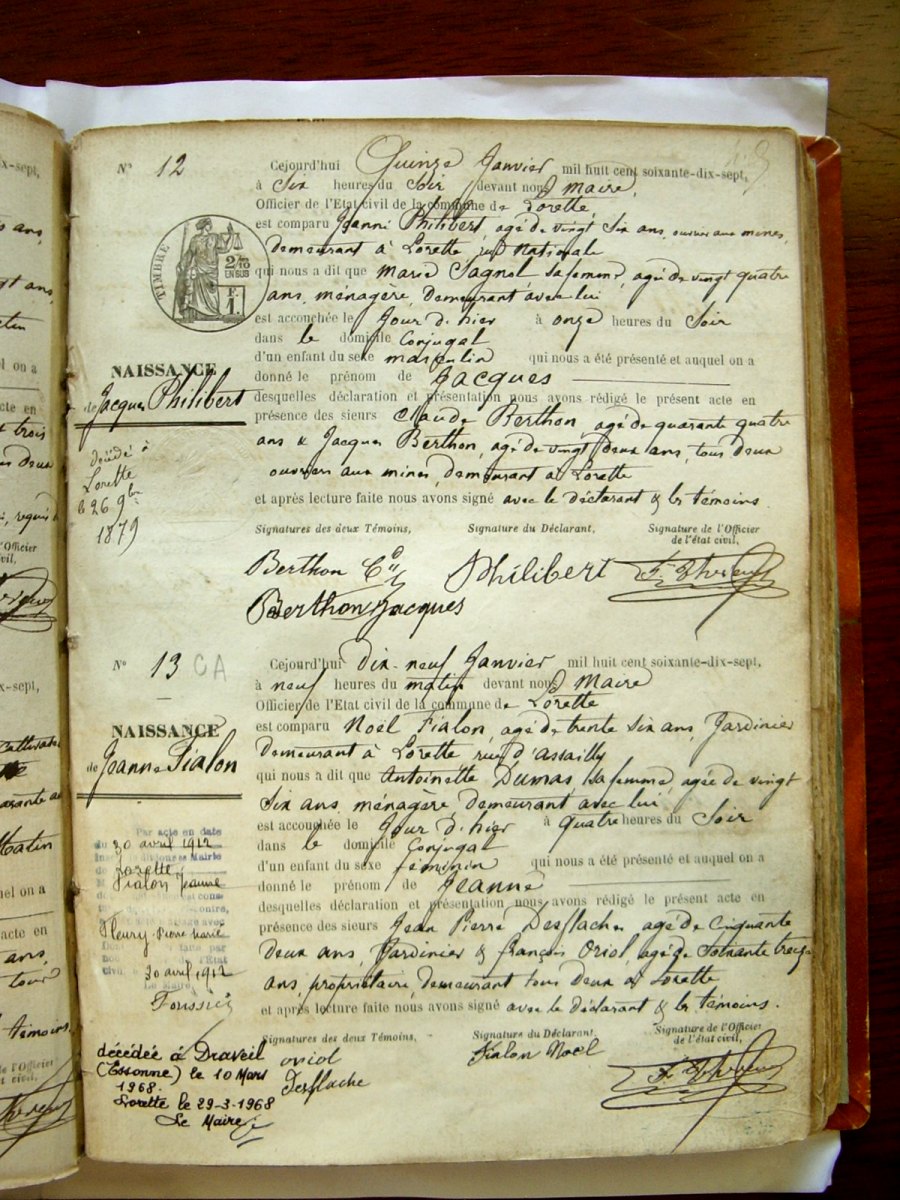 N° 12
Cejourd'hui Quinze Janvier mil huit cent soixante-dix-sept,
à Six heures du Soir devant nous Maire,
Officier de l'Etat civil de la commune de Lorette
est comparu Jeanni Philibert, agé de vingt Six ans, ouvrier aux mines,
demeurant à Lorette rue National
qui nous a dit que Marie Sagnol sa femme, agée de vingt quatre
ans, ménagère, demeurant avec lui
est accouchée le Jour d'hier à onze heures du Soir
dans le domicile Conjugal
d'un enfant du sexe masculin qui nous a été présenté et auquel on a
donné le prénom de Jacques
desquelles déclaration et présentation nous avons rédigé le présent acte en
présence des sieurs Claude Berthon, agé de quarante quatre
ans & Jacques Berthon, agé de vingt deux ans, tous deux
ouvriers aux mines, demeurant à Lorette
et après lecture faite nous avons signé avec le déclarant & les témoins.
TIMBRE
2/10
EN SUS
F.
1.
NAISSANCE
de Jacques Philibert
décédé à
Lorette
le 26 9bre
1879
Signatures des deux Témoins,
Signature du Déclarant,
Signature de l'Officier
de l'état civil,
Berthon Cde
Philibert
Berthon Jacques
N° 13 CA
Cejourd'hui dix-neuf Janvier mil huit cent soixante-dix-sept,
à neuf heures du matin devant nous Maire
Officier de l'Etat civil de la commune de Lorette
est comparu Noël Fialon, agé de trente Six ans, Jardinier
demeurant à Lorette rue d'assailly
qui nous a dit que Antoinette Dumas sa femme, agée de vingt
Six ans, ménagère, demeurant avec lui
est accouchée le Jour d'hier à quatre heures du Soir
dans le domicile Conjugal
d'un enfant du sexe féminin qui nous a été présenté et auquel on a
donné le prénom de Jeanne
desquelles déclaration et présentation nous avons rédigé le présent acte en
présence des sieurs Jean Pierre Desflaches agé de Cinquante
deux ans, Jardinier & françois Oriol, agé de Soixante treize
ans, propriétaire, demeurant tous deux à Lorette
et après lecture faite nous avons signé avec le Déclarant & les témoins.
NAISSANCE
de Jeanne Fialon
Par acte en date
du 30 avril 1912
Mairie
Lorette
Fialon Jeanne
avec
Fleury Pierre Marie
30 avril 1912
Le Maire
décédée à Draveil
(Essonne) le 10 Mars
1968.
Lorette le 29-3-1968
Le Maire
Signatures des deux Témoins,
Signature du Déclarant,
Signature de l'Officier
de l'état civil,
oriol
Fialon Noël
Desflache